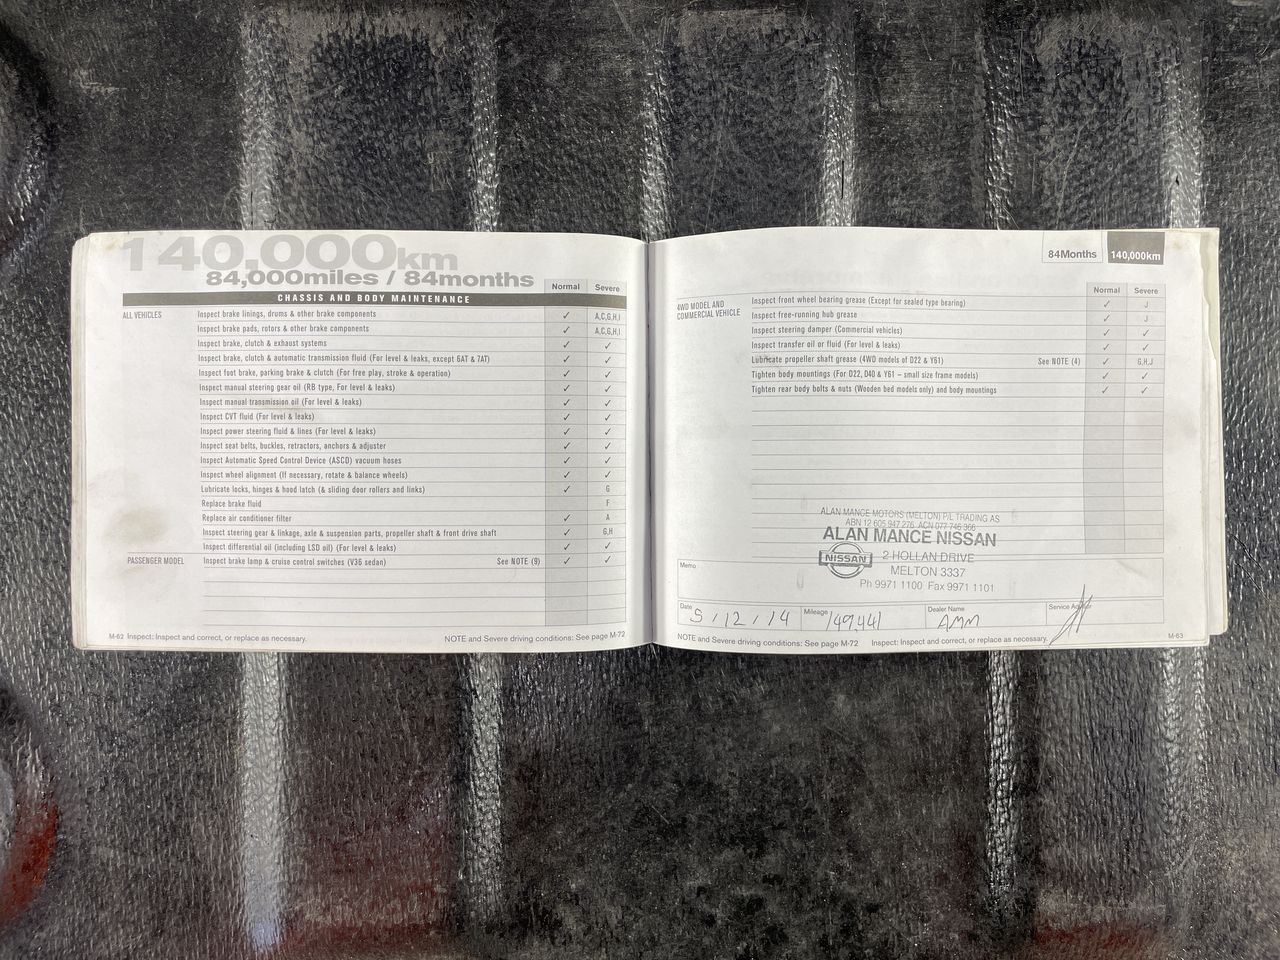 140,000km
84,000miles / 84months
Normal Severe
CHASSIS AND BODY MAINTENANCE
ALL VEHICLES Inspect brake linings, drums & other brake components ✓ A,C,G,H,I
Inspect brake pads, rotors & other brake components ✓ A,C,G,H,I
Inspect brake, clutch & exhaust systems ✓ ✓
Inspect brake, clutch & automatic transmission fluid (For level & leaks, except 6AT & 7AT) ✓ ✓
Inspect foot brake, parking brake & clutch (For free play, stroke & operation) ✓ ✓
Inspect manual steering gear oil (RB type, For level & leaks) ✓ ✓
Inspect manual transmission oil (For level & leaks) ✓ ✓
Inspect CVT fluid (For level & leaks) ✓ ✓
Inspect power steering fluid & lines (For level & leaks) ✓ ✓
Inspect seat belts, buckles, retractors, anchors & adjuster ✓ ✓
Inspect Automatic Speed Control Device (ASCD) vacuum hoses ✓ ✓
Inspect wheel alignment (If necessary, rotate & balance wheels) ✓ ✓
Lubricate locks, hinges & hood latch (& sliding door rollers and links) ✓ G
Replace brake fluid F
Replace air conditioner filter ✓ A
Inspect steering gear & linkage, axle & suspension parts, propeller shaft & front drive shaft ✓ G,H
Inspect differential oil (including LSD oil) (For level & leaks) ✓ ✓
PASSENGER MODEL Inspect brake lamp & cruise control switches (V36 sedan) See NOTE (9) ✓ ✓
M-62 Inspect: Inspect and correct, or replace as necessary. NOTE and Severe driving conditions: See page M-72
84Months 140,000km
Normal Severe
4WD MODEL AND
COMMERCIAL VEHICLE
Inspect front wheel bearing grease (Except for sealed type bearing) ✓ J
Inspect free-running hub grease ✓ J
Inspect steering damper (Commercial vehicles) ✓ ✓
Inspect transfer oil or fluid (For level & leaks) ✓ ✓
Lubricate propeller shaft grease (4WD models of D22 & Y61) See NOTE (4) ✓ G,H,J
Tighten body mountings (For D22, D40 & Y61 – small size frame models) ✓ ✓
Tighten rear body bolts & nuts (Wooden bed models only) and body mountings ✓ ✓
ALAN MANCE MOTORS (MELTON) P/L TRADING AS
ABN 12 605 947 276 ACN 077 746 366
ALAN MANCE NISSAN
NISSAN 2 HOLLAN DRIVE
MELTON 3337
Ph 9971 1100 Fax 9971 1101
Memo
Date 5/12/14 Mileage 149441 Dealer Name AMM Service Advisor
NOTE and Severe driving conditions: See page M-72 Inspect: Inspect and correct, or replace as necessary. M-63